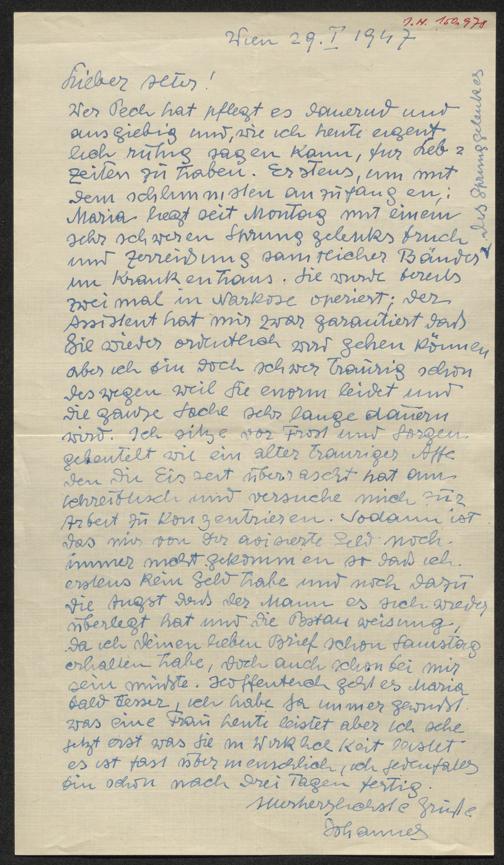 J.N. 150.978
Wien 29. I 1947
Lieber Peter!
Wer Pech hat pflegt es dauernd und
ausgiebig und, wie ich heute eigent
lich ruhig sagen kann, für Leb=
zeiten zu haben. Erstens, um mit
dem schlimmsten anzufangen,:
Maria liegt seit Montag mit einem
sehr schweren Sprunggelenksbruch
und Zerreißung sämtlicher Bänder
des Sprunggelenkes
im Krankenhaus. Sie wurde bereits
zwei mal in Narkose operiert; der
Assistent hat mir zwar garantiert daß
Sie wieder ordentlich wird gehen können
aber ich bin doch schwer traurig schon
deswegen weil Sie enorm leidet und
die ganze Sache sehr lange dauern
wird. Ich sitze vor Frost und Sorgen
gebeutelt wie ein alter trauriger Affe
den die Eiszeit überrascht hat am
Schreibtisch und versuche mich zur
Arbeit zu konzentrieren. Sodann ist
das mir von Dir avisierte Geld noch
immer nicht gekommen so daß ich
erstens kein Geld habe und noch dazu
die Angst daß der Mann es sich wieder
überlegt hat und die Postanweisung,
da ich Deinen lieben Brief schon Samstag
erhalten habe, doch auch schon bei mir
sein müßte. Hoffentlich geht es Maria
bald besser, ich habe ja immer gewußt
was eine Frau heute leistet aber ich sehe
jetzt erst was Sie in Wirklichkeit leistet
es ist fast übermenschlich, ich jedenfalls
bin schon nach drei Tagen fertig.
Allerherzlichste Grüße
Johannes